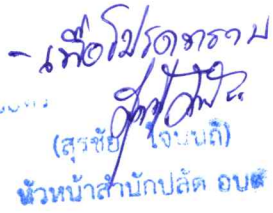 - เพื่อโปรดทราบ
(สุรชัย ใจบนถี)
หัวหน้าสำนักปลัด อบต